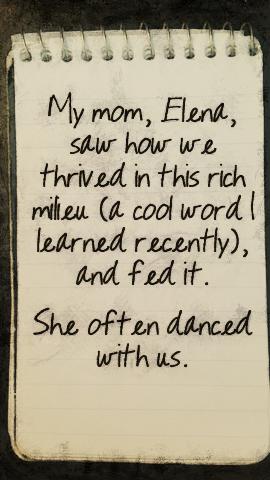 My mom, Elena,
saw how we
thrived in this rich
milieu (a cool word I
learned recently),
and fed it.
She often danced
with us.